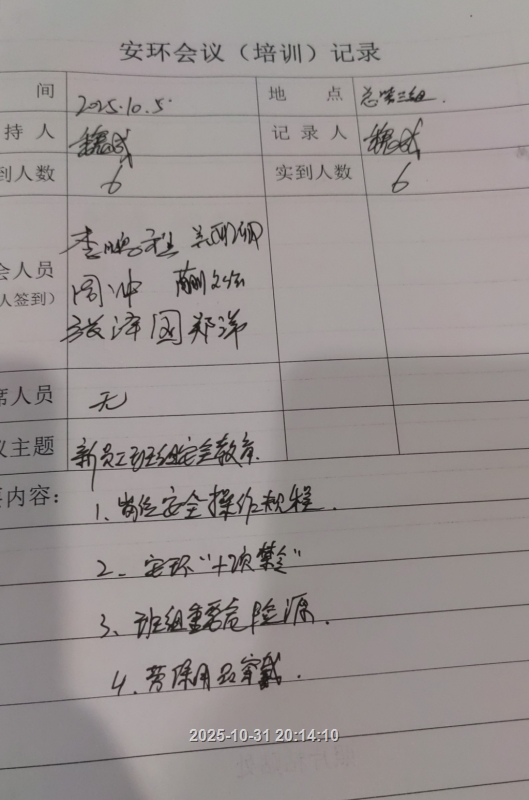 安环会议（培训）记录
间 2025.10.5. 地 点 总装三组.
持 人 魏斌 记 录 人 魏斌
到人数 6 实到人数 6
会人员
人签到)
周冲
张泽国 郑洋
席人员 无
议主题 新员工班组安全教育.
要内容: 1、岗位安全操作规程.
2、安环“十项禁令”
3、班组重要危险源.
4、劳保用品穿戴.
2025-10-31 20:14:10